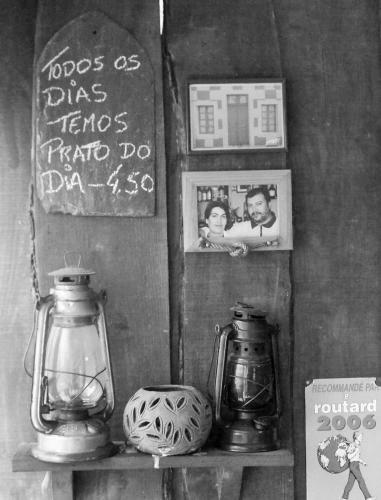 TODOS OS
DIAS
-TEMOS
PRATO DO
DIA - 4.50
RECOMMANDÉ PAR
routard
2006